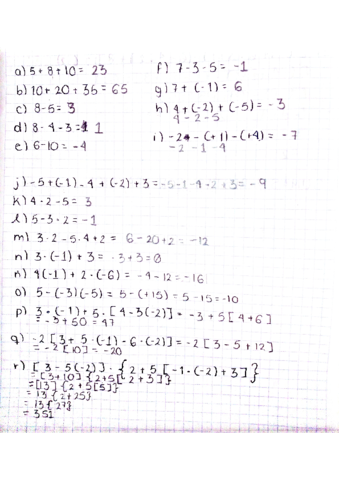 a) 5+8+10= 23
b) 10+20+35=65
c) 8-5=3
d) 8-4-3=1
e) 6-10=-4
f) 7-3-5=-1
g) 7+(-1)=6
h) 4+(-2)+(-5)=-3
4-2-5
i) -2-(+1)-(+4)=-7
-2-1-4
j) -5+(-1)-4+(-2)+3=-5-1-4-2+3=-9
k) 4·2-5=3
l) 5-3·2=-1
m) 3·2-5·4+2= 6-20+2=-12
n) 3·(-1)+3= -3+3=0
ñ) 4(-1)+2·(-6)= -4-12=-16
o) 5-(-3)(-5)=5-(+15)=5-15=-10
p) 3·(-1)+5·[4-3(-2)]=-3+5[4+6]
=-3+50=47
q) -2[3+5·(-1)-6·(-2)]=-2[3-5+12]
=-2[10]=-20
r) [3-5(-2)]·{2+5[-1·(-2)+3]}
=[3+10]{2+5[2+3]}
=[13]{2+5[5]}
=13{2+25}
=13{27}
=351